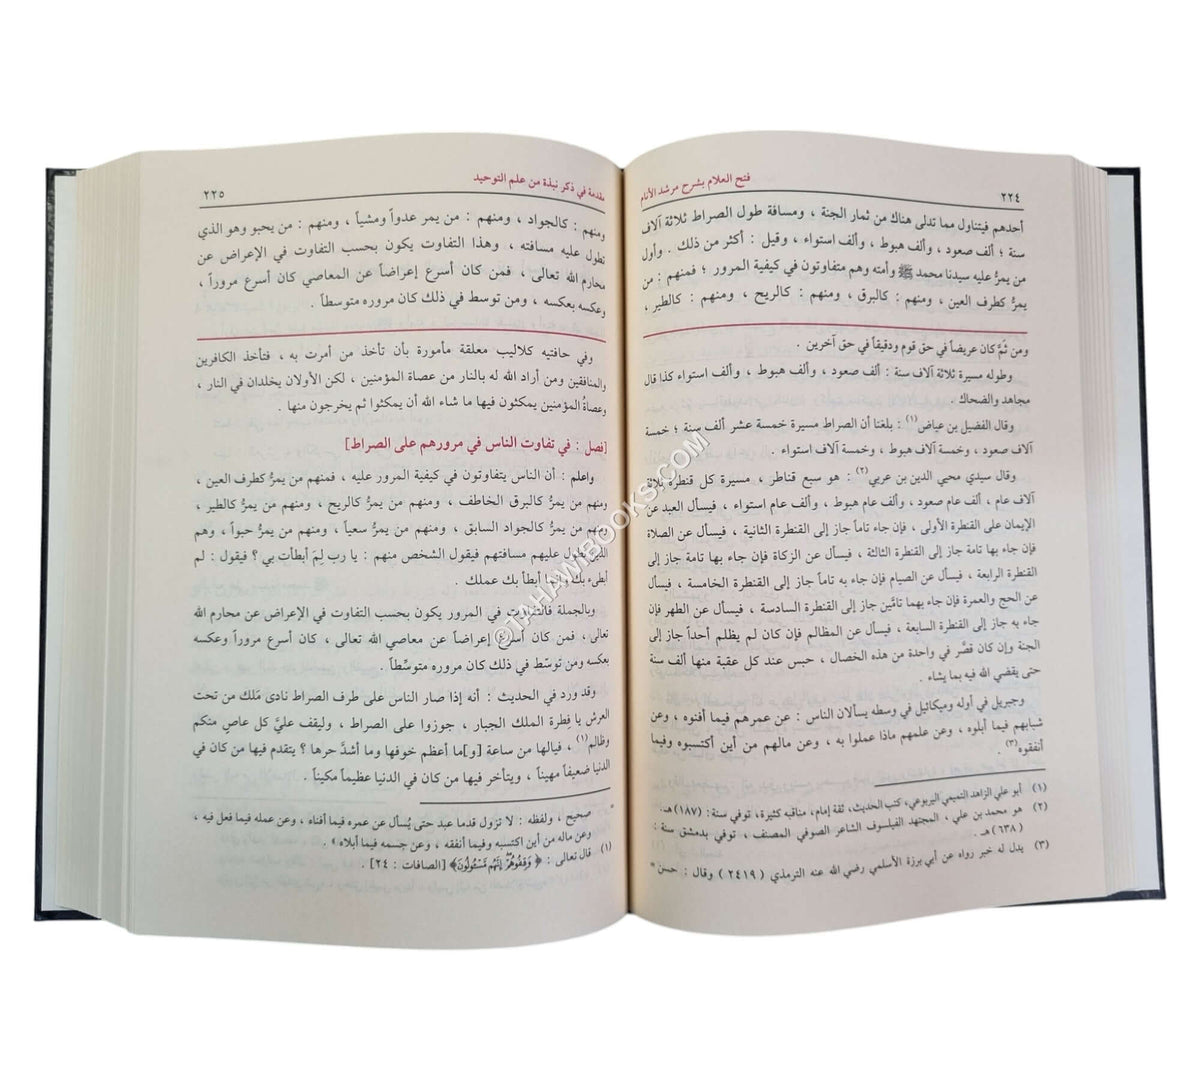 ٢٢٤
فتح العلام بشرح مرشد الأنام
أحدهم فيتناول مما تدلى هناك من ثمار الجنة ، ومسافة طول الصراط ثلاثة آلاف
سنة ؛ ألف صعود ، وألف هبوط ، وألف استواء ، وقيل : أكثر من ذلك . وأول
من يمرُّ عليه سيدنا محمد ﷺ وأمته وهم متفاوتون في كيفية المرور ؛ فمنهم : من
يمرُّ كطرف العين ، ومنهم : كالبرق ، ومنهم : كالريح ، ومنهم : كالطير ،
ومن ثَمَّ كان عريضاً في حق قوم ودقيقاً في حق آخرين .
وطوله مسيرة ثلاثة آلاف سنة : ألف صعود ، وألف هبوط ، وألف استواء كذا قال
مجاهد والضحاك .
وقال الفضيل بن عياض(١) : بلغنا أن الصراط مسيرة خمسة عشر ألف سنة ؛ خمسة
آلاف صعود ، وخمسة آلاف هبوط ، وخمسة آلاف استواء .
وقال سيدي محي الدين بن عربي(٢) : هو سبع قناطر ، مسيرة كل قنطرة ثلاثة
آلاف عام ، ألف عام صعود ، وألف عام هبوط ، وألف عام استواء ، فيسأل العبد عن
الإيمان على القنطرة الأولى ، فإن جاء تاماً جاز إلى القنطرة الثانية ، فيسأل عن الصلاة
فإن جاء بها تامة جاز إلى القنطرة الثالثة ، فيسأل عن الزكاة فإن جاء بها تامة جاز إلى
القنطرة الرابعة ، فيسأل عن الصيام فإن جاء به تاماً جاز إلى القنطرة الخامسة ، فيسأل
عن الحج والعمرة فإن جاء بهما تامَّين جاز إلى القنطرة السادسة ، فيسأل عن الطهر فإن
جاء به جاز إلى القنطرة السابعة ، فيسأل عن المظالم فإن كان لم يظلم أحداً جاز إلى
الجنة وإن كان قصَّر في واحدة من هذه الخصال ، حبس عند كل عقبة منها ألف سنة
حتى يقضي الله فيه بما يشاء .
وجبريل في أوله وميكائيل في وسطه يسألان الناس : عن عمرهم فيما أفنوه ، وعن
شبابهم فيما أبلوه ، وعن علمهم ماذا عملوا به ، وعن مالهم من أين أكتسبوه وفيما
أنفقوه(٣) .
(١) أبو علي الزاهد التميمي اليربوعي، كتب الحديث، ثقة إمام، مناقبه كثيرة، توفي سنة : (١٨٧) هـ .
(٢) هو محمد بن علي ، المجتهد الفيلسوف الشاعر الصوفي المصنف ، توفي بدمشق سنة :
(٦٣٨) هـ .
(٣) يدل له خبر رواه عن أبي برزة الأسلمي رضي الله عنه الترمذي (٢٤١٩) وقال : حسن =
مقدمة في ذكر نبذة من علم التوحيد
٢٢٥
ومنهم : كالجواد ، ومنهم : من يمر عدواً ومشياً ، ومنهم : من يحبو وهو الذي
تطول عليه مسافته ، وهذا التفاوت يكون بحسب التفاوت في الإعراض عن
محارم الله تعالى ، فمن كان أسرع إعراضاً عن المعاصي كان أسرع مروراً ،
وعكسه بعكسه ، ومن توسط في ذلك كان مروره متوسطاً .
وفي حافتيه كلاليب معلقة مأمورة بأن تأخذ من أمرت به ، فتأخذ الكافرين
والمنافقين ومن أراد الله له بالنار من عصاة المؤمنين ، لكن الأولان يخلدان في النار ،
وعصاةُ المؤمنين يمكثون فيها ما شاء الله أن يمكثوا ثم يخرجون منها .
[فصل : في تفاوت الناس في مرورهم على الصراط]
واعلم : أن الناس يتفاوتون في كيفية المرور عليه ، فمنهم من يمرُّ كطرف العين ،
ومنهم من يمرُّ كالبرق الخاطف ، ومنهم من يمرُّ كالريح ، ومنهم من يمرُّ كالطير ،
ومنهم من يمرُّ كالجواد السابق ، ومنهم من يمرُّ سعياً ، ومنهم من يمرُّ حبواً ، وهم
الذين تطول عليهم مسافتهم فيقول الشخص منهم : يا رب لِمَ أبطأت بي ؟ فيقول : لم
أبطىء بك إنما أبطأ بك عملك .
وبالجملة فالتفاوت في المرور يكون بحسب التفاوت في الإعراض عن محارم الله
تعالى ، فمن كان أسرع إعراضاً عن معاصي الله تعالى ، كان أسرع مروراً وعكسه
بعكسه ومن توسَّط في ذلك كان مروره متوسِّطاً .
وقد ورد في الحديث : أنه إذا صار الناس على طرف الصراط نادى مَلك من تحت
العرش يا فِطرة الملك الجبار ، جوزوا على الصراط ، وليقف عليَّ كل عاصٍ منكم
وظالم(١) ، فيالها من ساعة [و]ما أعظم خوفها وما أشدَّ حرها ؟ يتقدم فيها من كان في
الدنيا ضعيفاً مهيناً ، ويتأخر فيها من كان في الدنيا عظيماً مكيناً .
= صحيح ، ولفظه : لا تزول قدما عبد حتى يُسأل عن عمره فيما أفناه ، وعن عمله فيما فعل فيه ،
وعن ماله من أين اكتسبه وفيما أنفقه ، وعن جسمه فيما أبلاه » .
(١) قال تعالى : ﴿ وَقِفُوهُمْ إِنَّهُم مَّسْئُولُونَ﴾ [الصافات : ٢٤] .
©TAHAWIBOOKS.COM